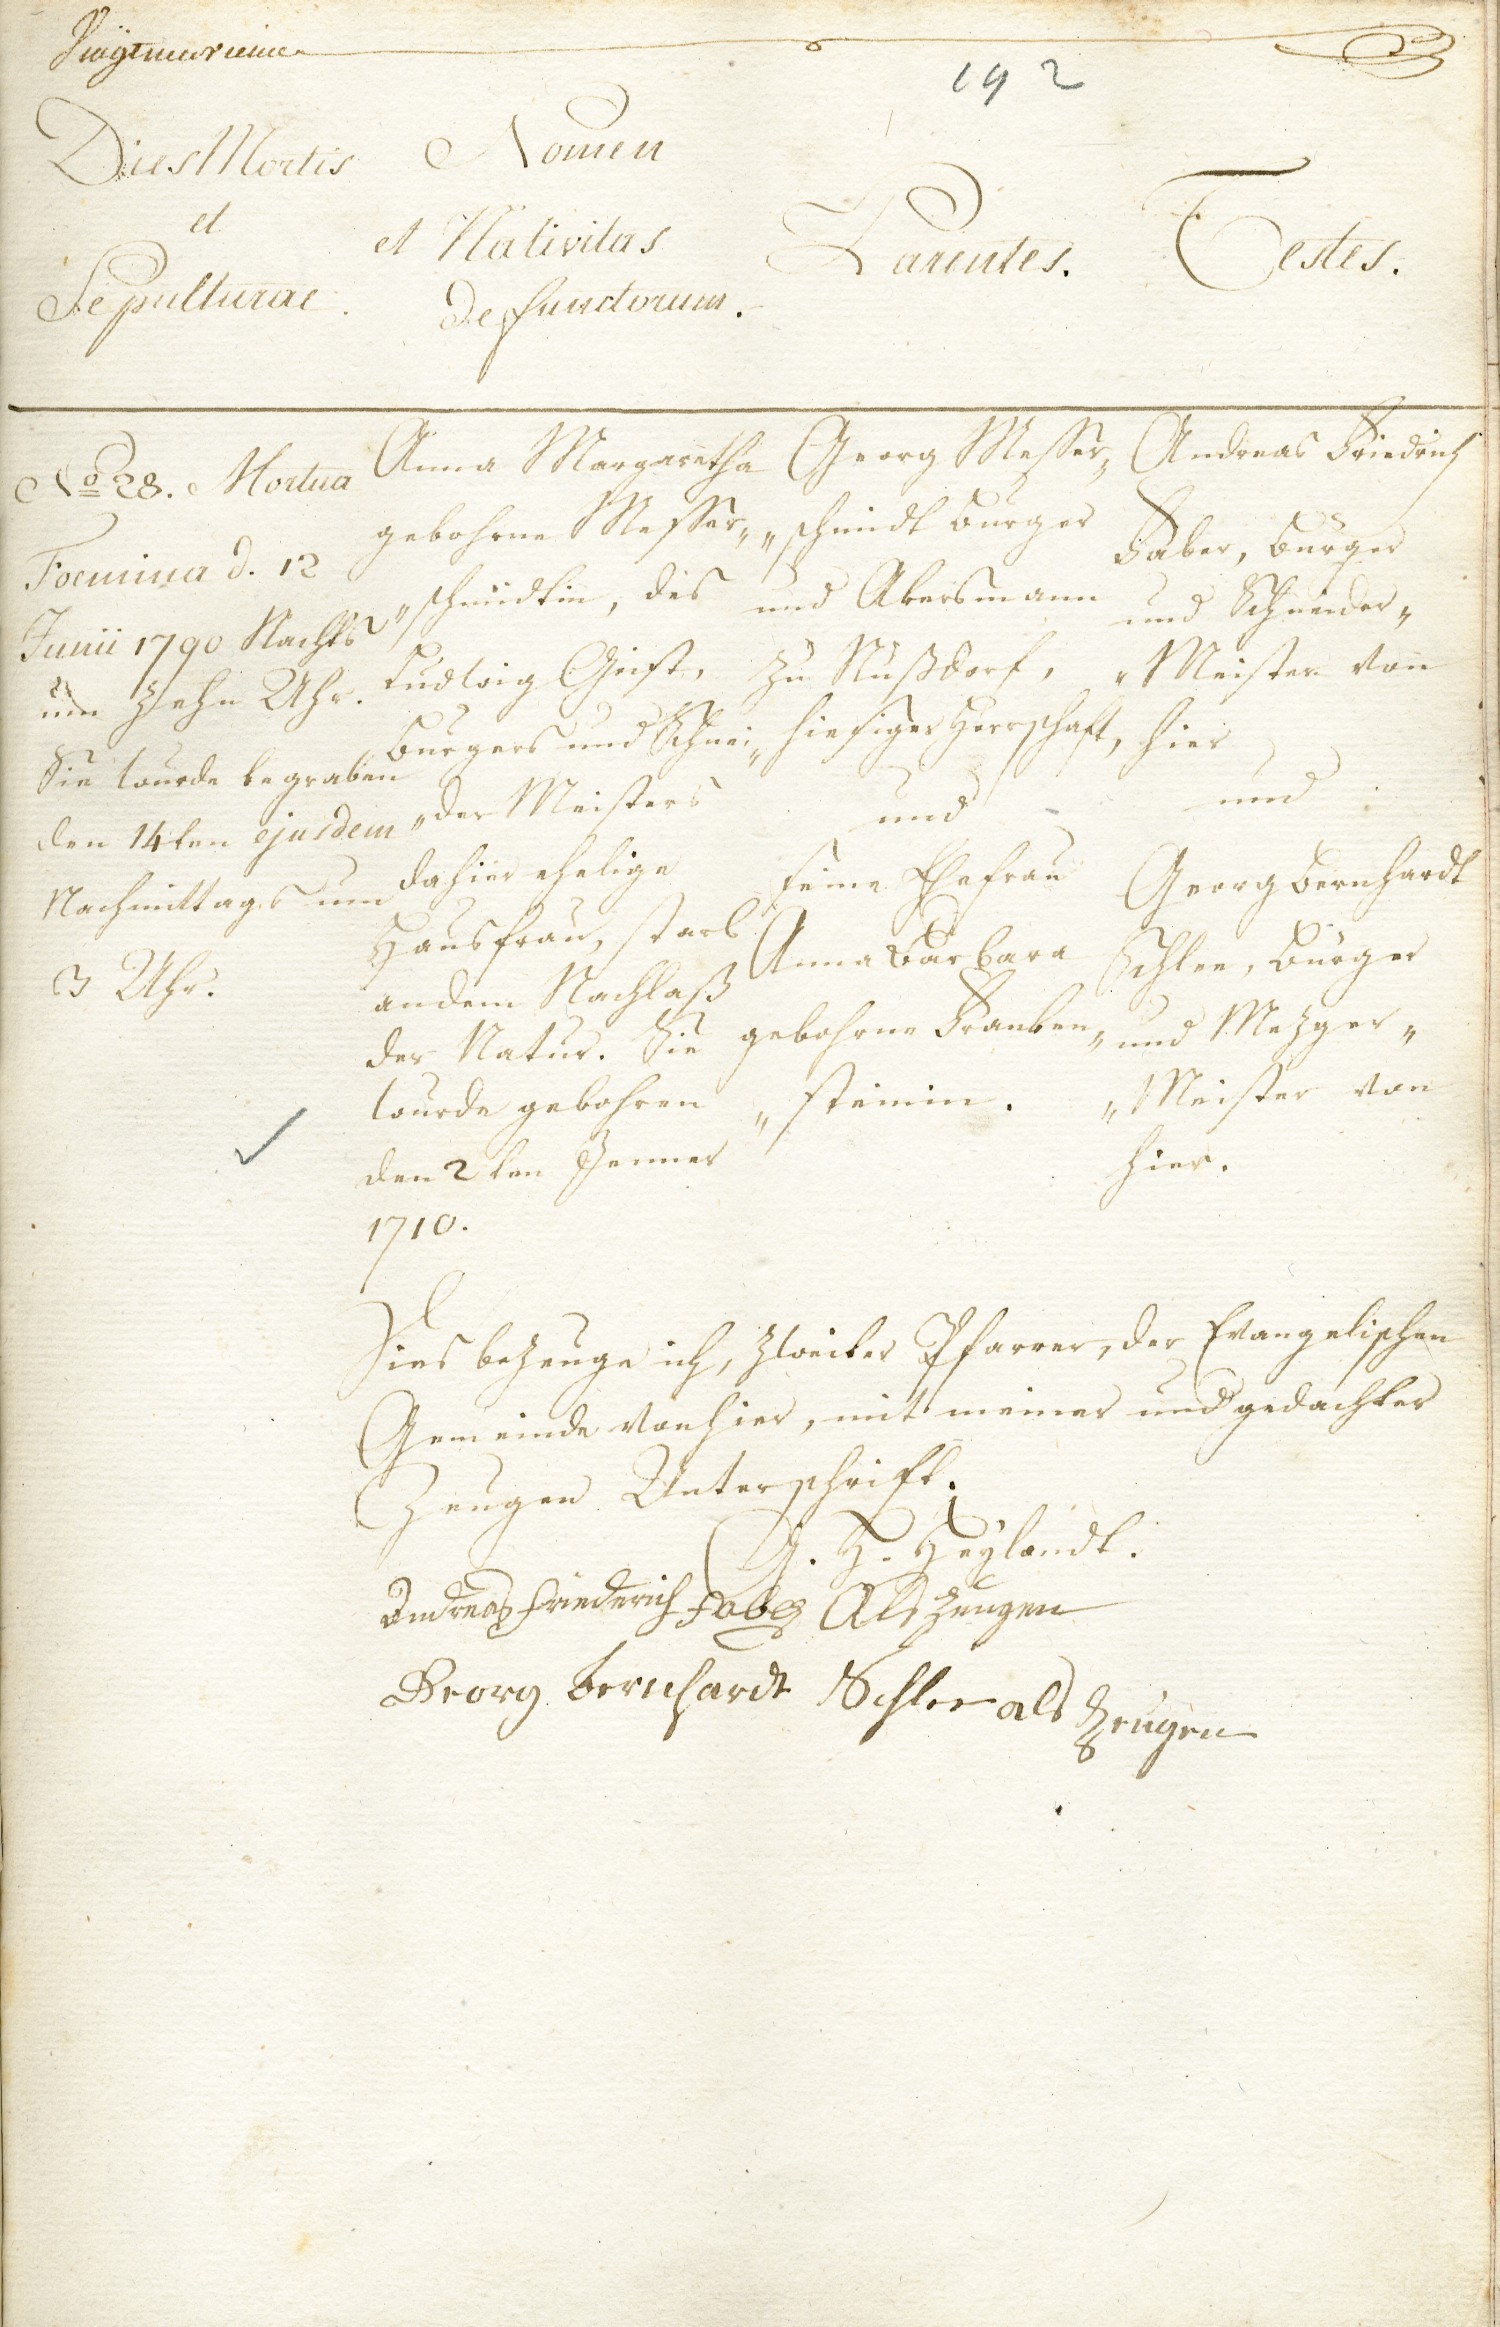 192
Dies Mortis
et
Sepulturae.
Nomen
et Nativitas
Defunctorum.
Parentes.
Testes.
No 28. Mortua
Foemina d. 12
Junii 1790 Nachts
um zehn Uhr.
Sie wurde begraben
den 14ten ejusdem
Nachmittags um
3 Uhr.
Anna Margaretha
gebohrne Messer„
„schmidtin, des
Ludwig Gist,
Burgers und Schnei„
„der Meisters
dahier ehelige
Hausfrau, starb
an dem Nachlaß
der Natur. Sie
wurde gebohren
den 2ten Jenner
1710.
Georg Messer„
„schmidt Burger
und Akersmann
zu Nußdorf,
hiesiger Herrschaft,
und
seine Ehefrau
Anna Barbara
gebohrne Franken„
„steinin.
Andreas Friedrich
Faber, Burger
und Schneider„
„Meister von
hier
und
Georg Bernhardt
Schlee, Burger
und Mezger„
„Meister von
hier.
Dies bezeuge ich, zweiter Pfarrer, der Evangelischen
Gemeinde von hier, mit meiner und gedachter
Zeugen Unterschrift.
G. H. Heylandt.
Andreas Friederich Faber Als zeugen
Georg Bernhardt Schlee als Zeugen